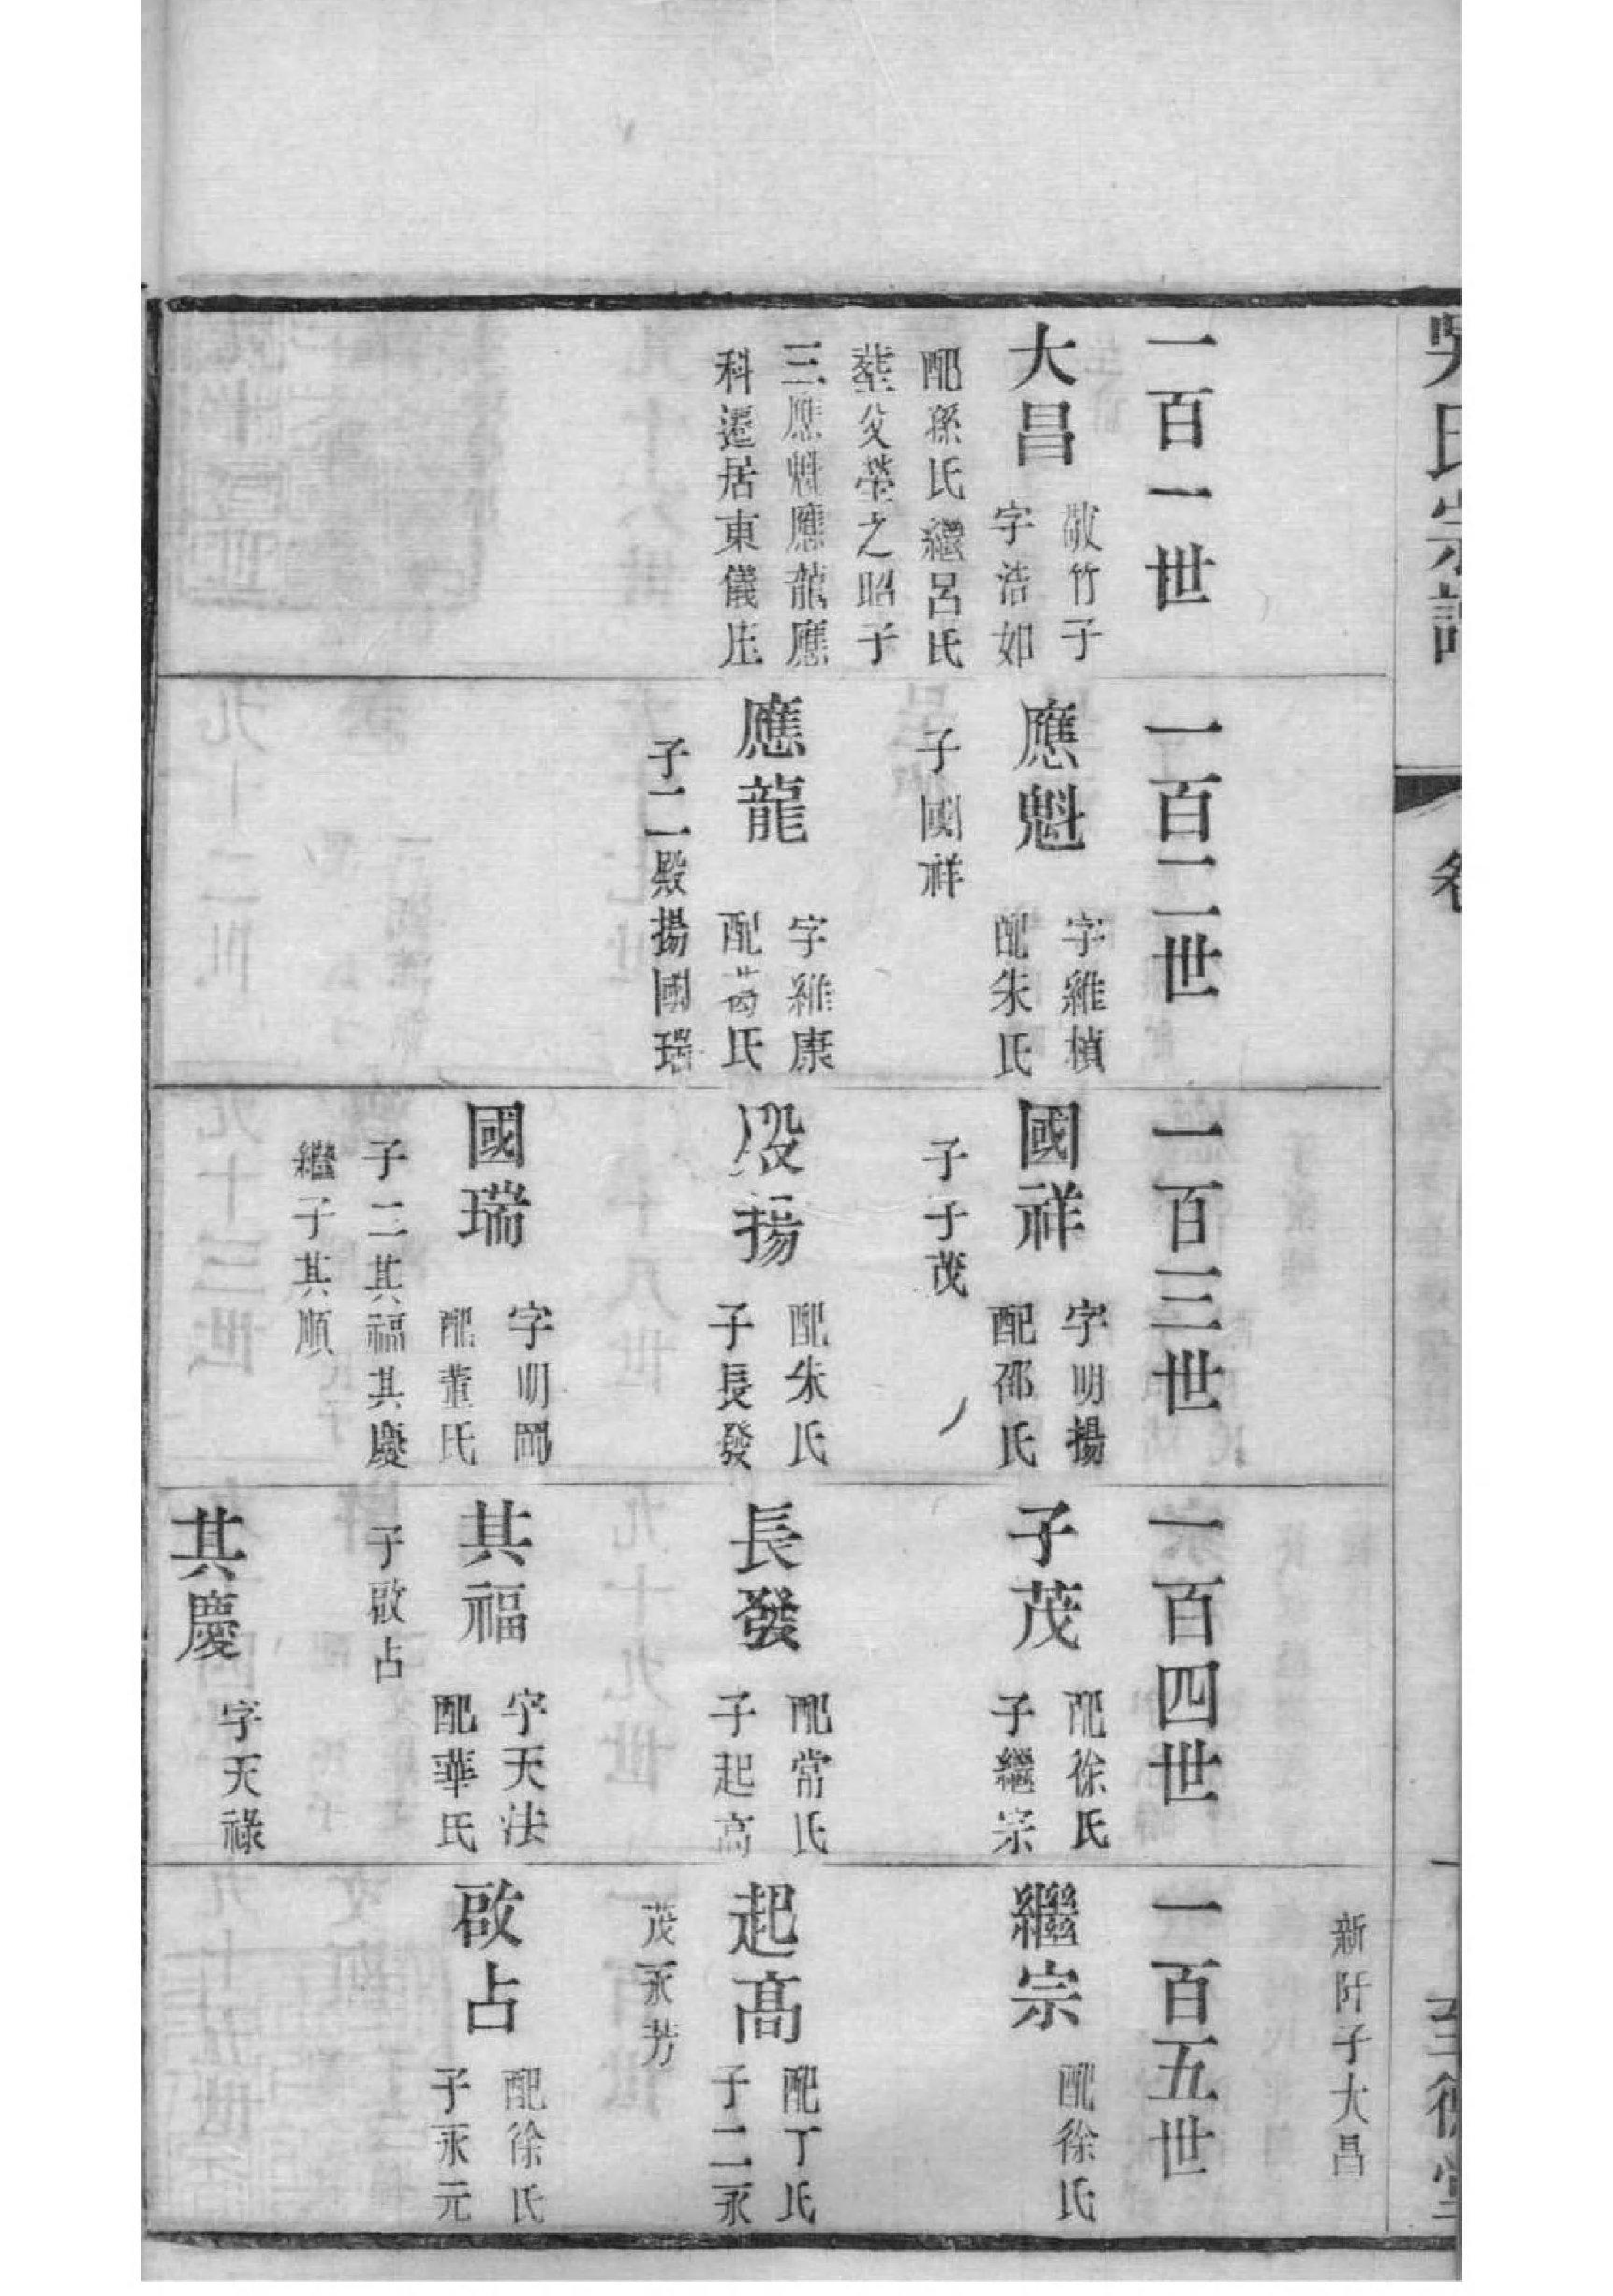 吳氏宗譜
卷
至德堂
新阡子大昌
一百一世
大昌
敬竹子
字浩如
配孫氏繼呂氏
塟父塋之昭子
三應魁應龍應
科遷居東儀庄
一百二世
應魁
字維楨
配朱氏
子國祥
應龍
字維康
配葛氏
子二殿揚國瑞
一百三世
國祥
字明揚
配邵氏
子子茂
殿揚
配朱氏
子長發
國瑞
字明岡
配董氏
子二其福其慶
繼子其順
一百四世
子茂
配徐氏
子繼宗
長發
配常氏
子起高
其福
字天法
配華氏
子啟占
其慶
字天祿
一百五世
繼宗
配徐氏
起高
配丁氏
子二永
茂永芳
啟占
配徐氏
子永元